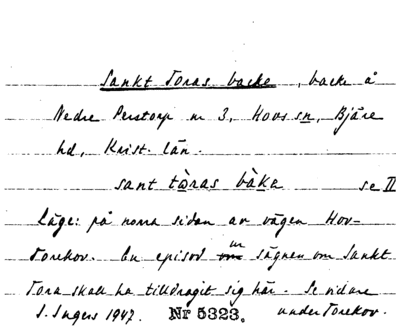 Sankt Toras backe, back å
Nedre Perstorp nr 3, Hovs sn, Bjäre
hd, Krist. län.
sant tòras bàka se II
Läge: på norra sidan av vägen Hov-
Torekov. En episod ur sägnen om Sankt
Tora skall ha tilldragit sig här. Se vidare
S. Ingers 1947. Nr 5323. under Torekov.